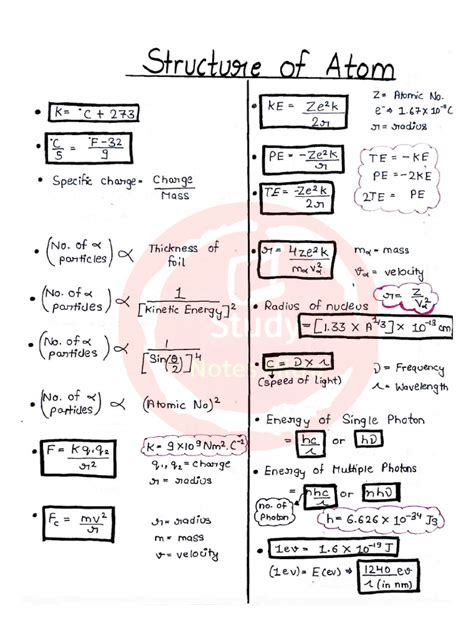 Structure of Atom
• K = °C + 273
• °C/5 = °F-32/9
• Specific charge = Charge/Mass
• (No. of α particles) ∝ Thickness of foil
• (No. of α particles) ∝ 1/[Kinetic Energy]²
• (No. of α particles) ∝ 1/[Sin(θ/2)]⁴
• (No of α particles) ∝ (Atomic No)²
• F = Kq₁q₂/r²
K = 9×10⁹ Nm².C⁻²
q₁, q₂ = charge
r = radius
• Fc = mv²/r
r = radius
m = mass
v = velocity
• KE = Ze²k/2r
Z = Atomic No.
e⁻ → 1.67×10⁻¹⁹C
r = radius
• PE = -Ze²k/r
• TE = -Ze²k/2r
TE = -KE
PE = -2KE
2TE = PE
• r = 4Ze²k/mαvα²
mα = mass
vα = velocity
• Radius of nucleus
r = Z/Vα²
= [1.33 × A^1/3] × 10⁻¹³ cm
• C = ν × λ
(speed of light)
ν = Frequency
λ = Wavelength
• Energy of Single Photon
= hc/λ or hν
• Energy of Multiple Photons
= nhc/λ or nhν
no. of Photon
h = 6.626 × 10⁻³⁴ Js
• 1ev = 1.6 × 10⁻¹⁹ J
(1ev) = E(ev) ⇒ 1240 ev/λ (in nm)
Study
Notes